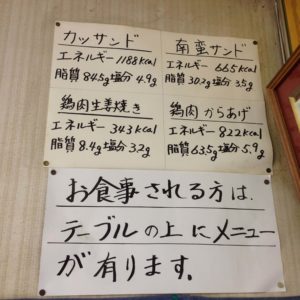 カツサンド
エネルギー1188kcal
脂質84.5g塩分4.9g
南蛮サンド
エネルギー665kcal
脂質30.2g塩分3.5g
鶏肉生姜焼き
エネルギー343kcal
脂質8.4g塩分3.2g
鶏肉からあげ
エネルギー822kcal
脂質63.5g塩分5.9g
お食事される方は、
テーブルの上にメニュー
が有ります。